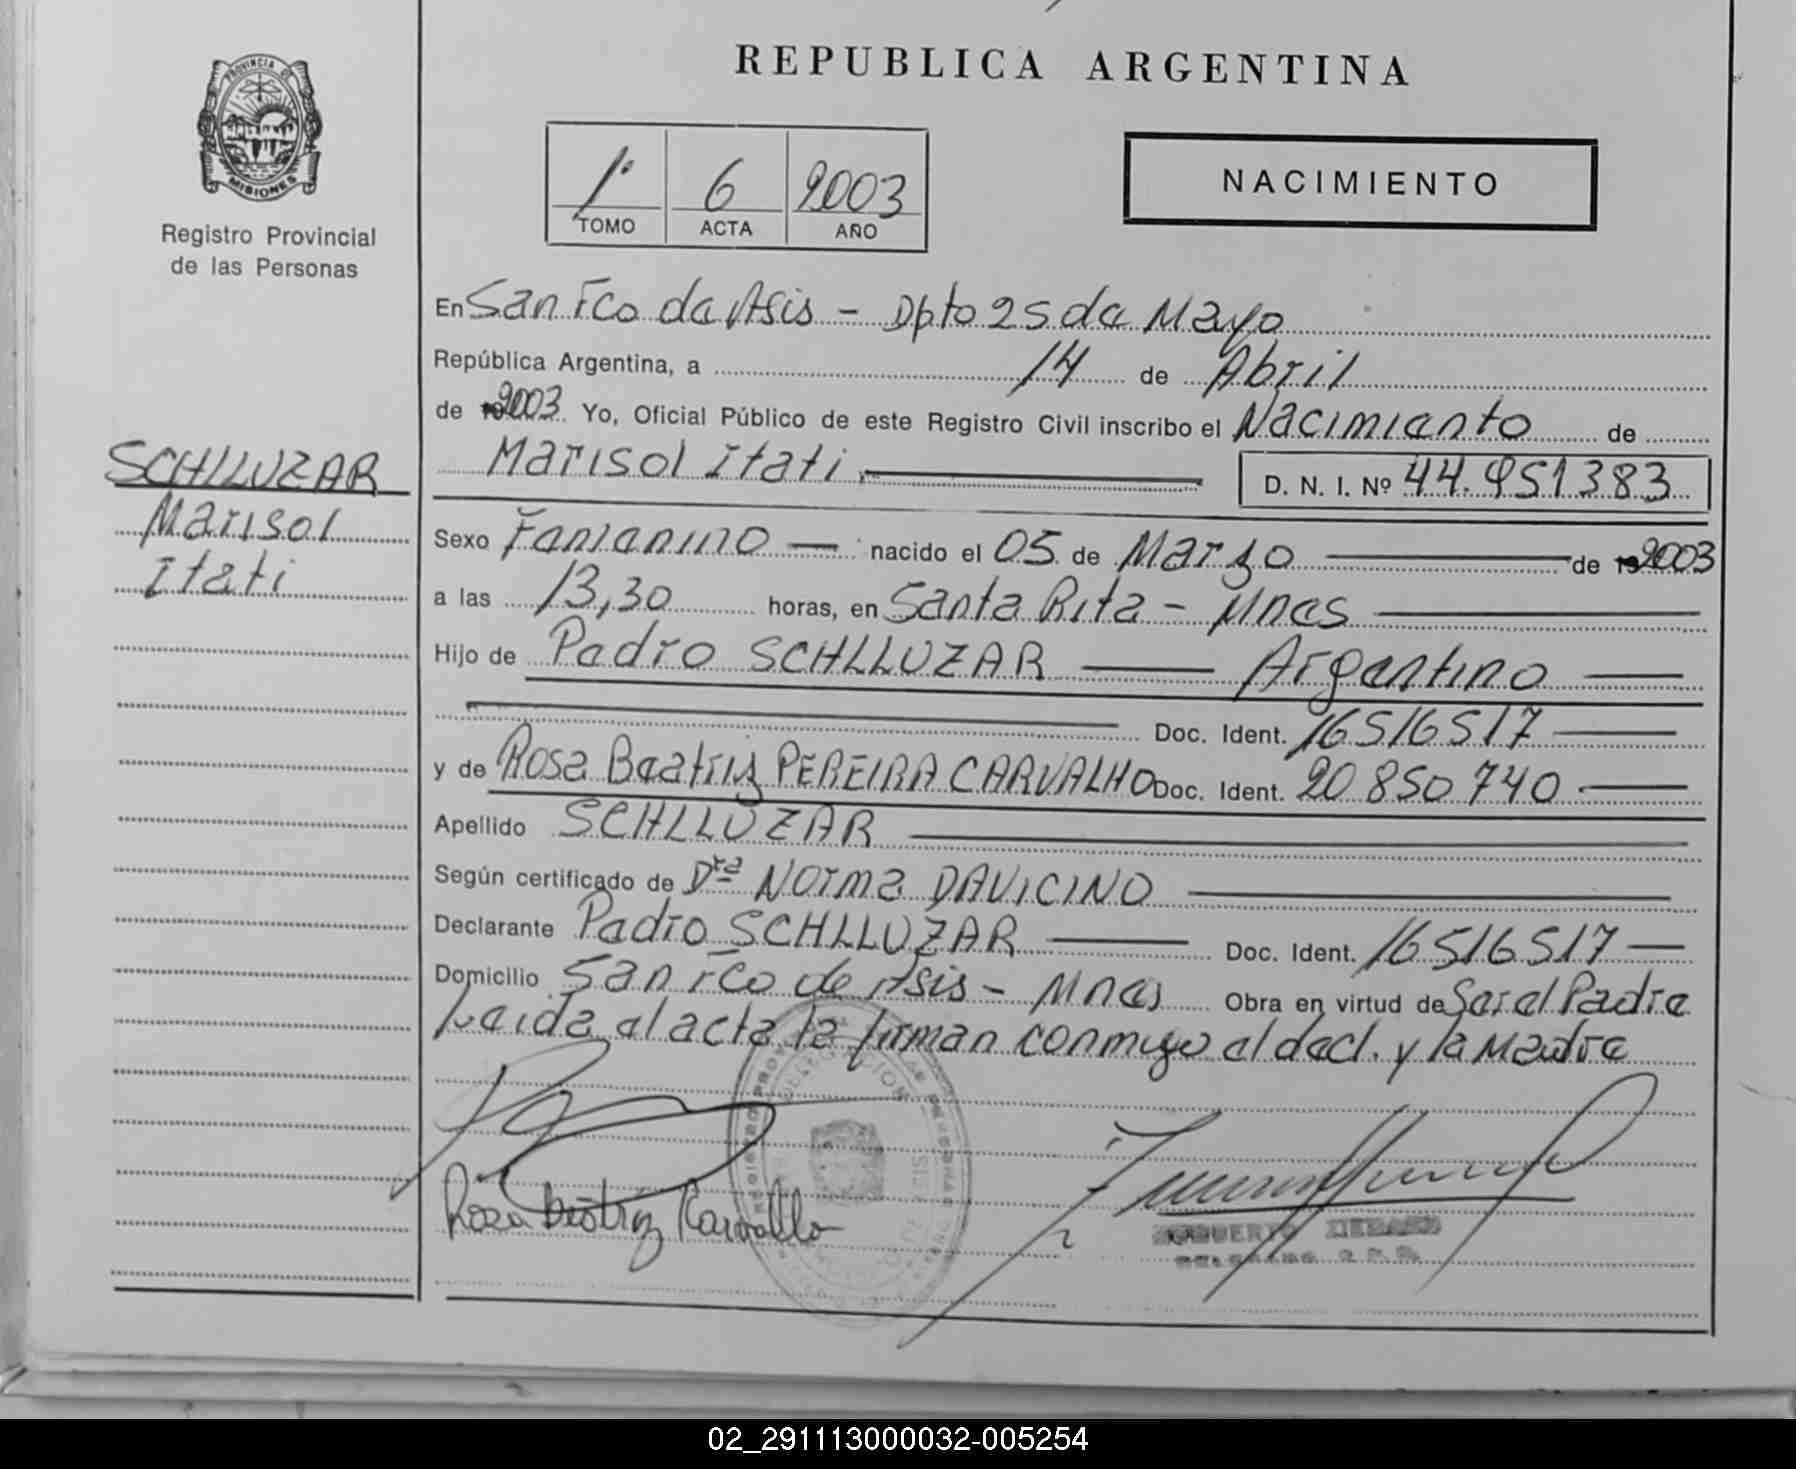 REPUBLICA ARGENTINA
PROVINCIA DE
MISIONES
Registro Provincial
de las Personas
1º 6 2003
TOMO ACTA AÑO
NACIMIENTO
En San Fco de Asis - Dpto 25 de Mayo
República Argentina, a 14 de Abril
de 2003 Yo, Oficial Público de este Registro Civil inscribo el Nacimiento de
Marisol Itati
D. N. I. Nº 44.951383
SCHLLUZAR
Marisol
Itati
Sexo Femenino — nacido el 05 de Marzo de 2003
a las 13,30 horas, en Santa Rita - Mnes
Hijo de Pedro SCHLLUZAR — Argentino —
Doc. Ident. 16516517
y de Rosa Beatriz PEREIRA CARVALHO Doc. Ident. 20850740
Apellido SCHLLUZAR
Según certificado de Dra Norma DAVICINO
Declarante Pedro SCHLLUZAR — Doc. Ident. 16516517 —
Domicilio San Fco de Asis - Mnes Obra en virtud de Ser el Padre
Leida el acta la firman conmigo el decl. y la Madre
Rosa Beatriz Carvallo
02_291113000032-005254